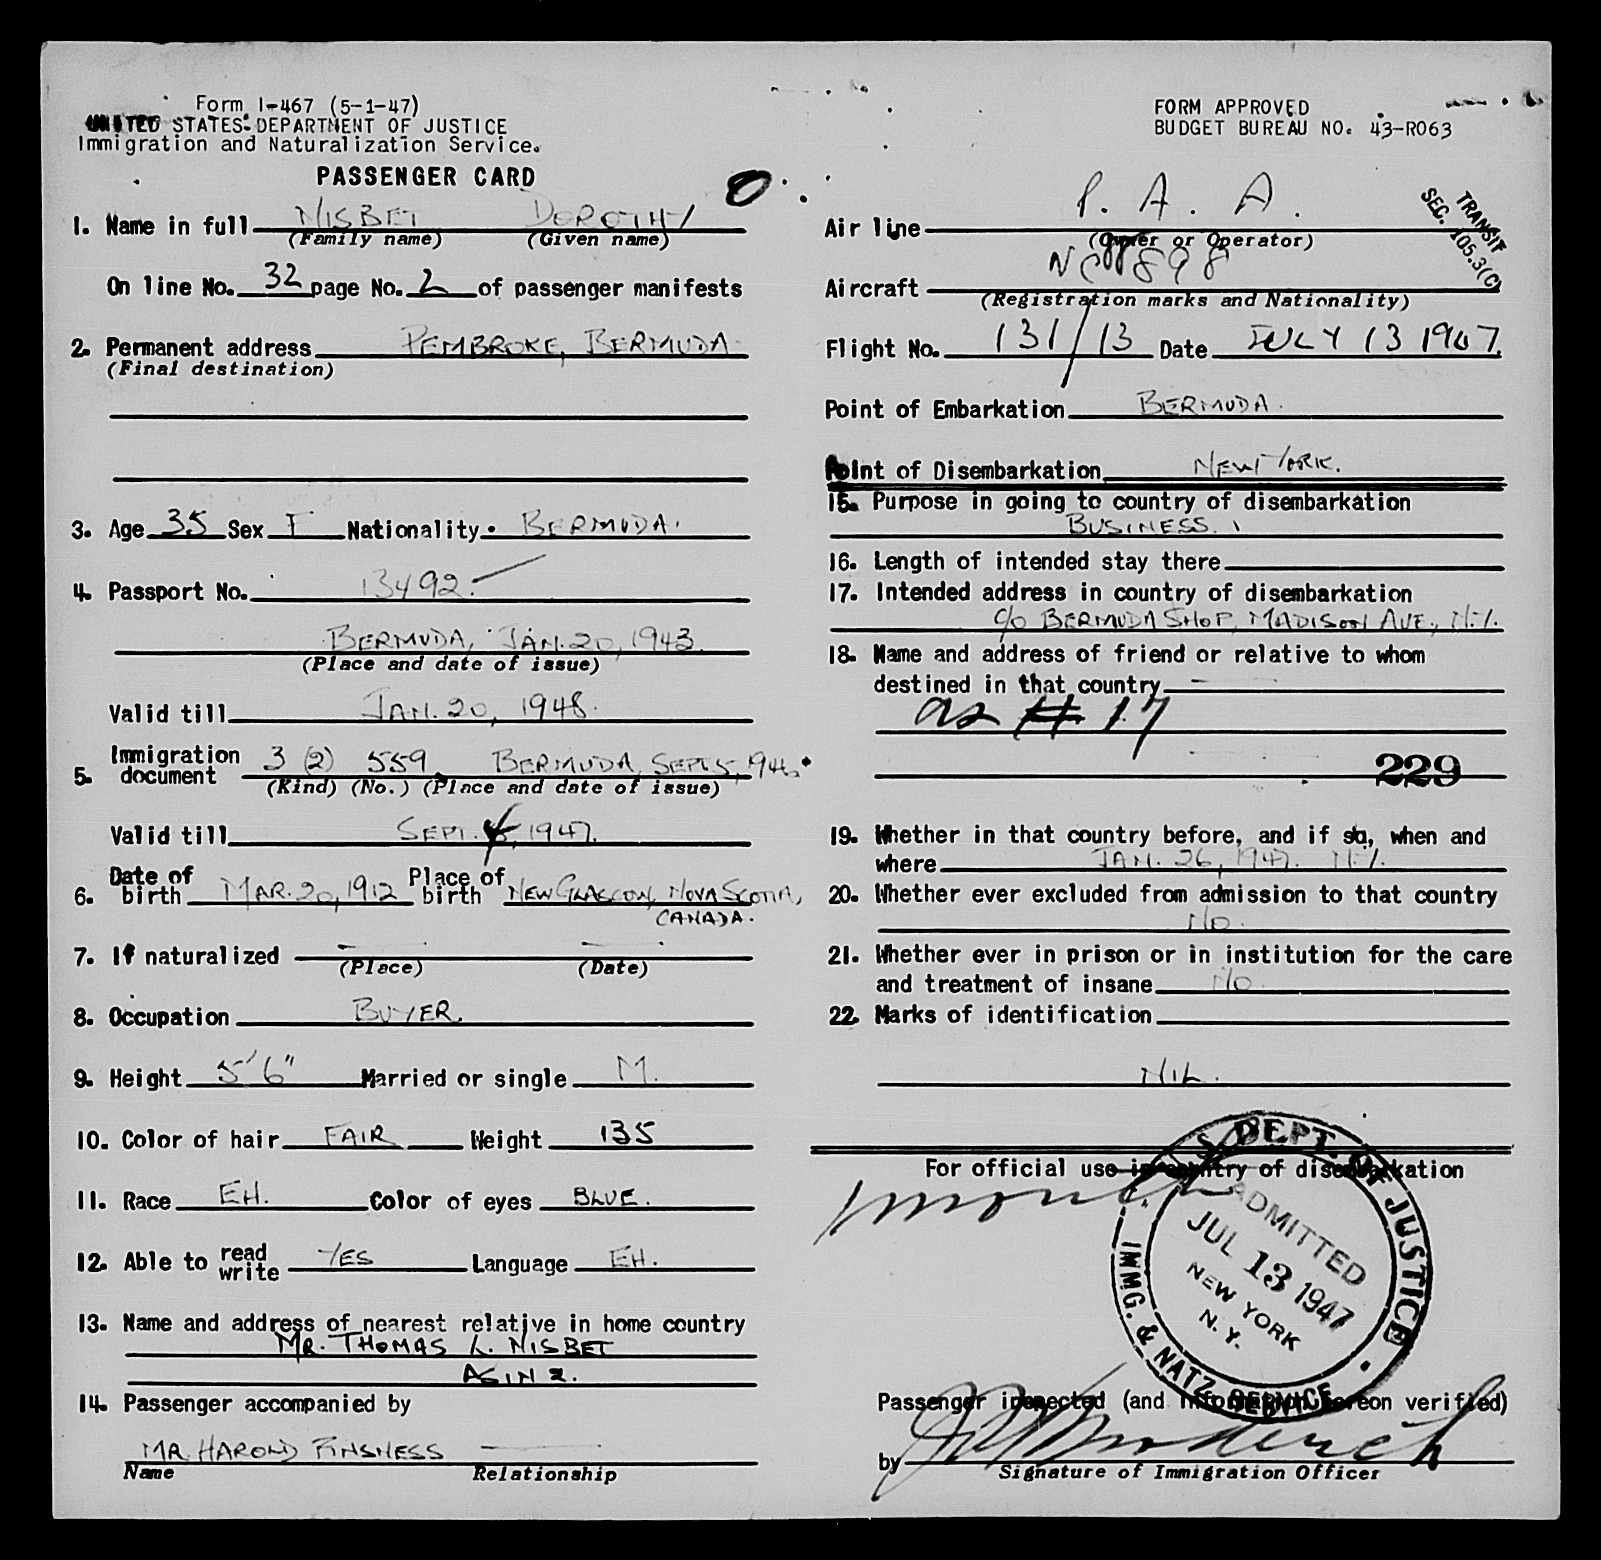 Form I-467 (5-1-47)
UNITED STATES DEPARTMENT OF JUSTICE
Immigration and Naturalization Service.
PASSENGER CARD
FORM APPROVED
BUDGET BUREAU NO. 43-R063
1. Name in full NISBET DOROTHY
(Family name) (Given name)
On line No. 32 page No. 2 of passenger manifests
2. Permanent address PEMBROKE, BERMUDA
(Final destination)
3. Age 35 Sex F Nationality BERMUDA.
4. Passport No. 13492.
BERMUDA, JAN. 20, 1943.
(Place and date of issue)
Valid till JAN. 20, 1948.
5. Immigration document 3 (2) 559 BERMUDA, SEPT 5, 1946.
(Kind) (No.) (Place and date of issue)
Valid till SEPT. 4, 1947.
6. Date of birth MAR. 20, 1912 Place of birth NEW GLASGOW, NOVA SCOTIA,
CANADA.
7. If naturalized
(Place) (Date)
8. Occupation BUYER.
9. Height 5'6" Married or single M.
10. Color of hair FAIR Weight 135
11. Race EH. Color of eyes BLUE.
12. Able to read write YES Language EH.
13. Name and address of nearest relative in home country
MR. THOMAS L. NISBET
AS IN 2.
14. Passenger accompanied by
MR HAROLD
Name Relationship
Air line P. A. A.
(Owner or Operator)
TRANSIT
SEC. 105.3(C)
Aircraft
(Registration marks and Nationality)
Flight No. 131/13 Date JULY 13 1947.
Point of Embarkation BERMUDA.
Point of Disembarkation NEW YORK.
15. Purpose in going to country of disembarkation
BUSINESS.
16. Length of intended stay there
17. Intended address in country of disembarkation
c/o BERMUDA SHOP, MADISON AVE., N.Y.
18. Name and address of friend or relative to whom
destined in that country
as # 17
229
19. Whether in that country before, and if so, when and
where JAN. 26, 1947. N.Y.
20. Whether ever excluded from admission to that country
NO.
21. Whether ever in prison or in institution for the care
and treatment of insane NO.
22. Marks of identification
NIL.
For official use in country of disembarkation
U. S. DEPT. OF JUSTICE
ADMITTED
JUL 13 1947
NEW YORK
N. Y.
IMMG. & NATZ. SERVICE
Passenger inspected (and information hereon verified)
by
Signature of Immigration Officer